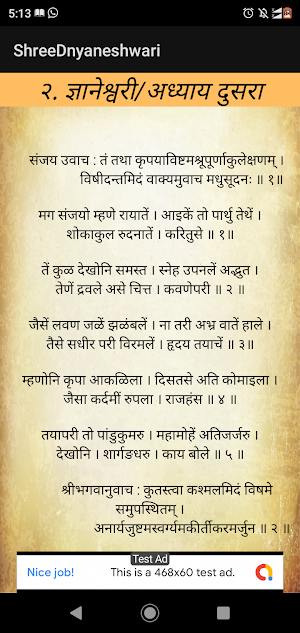 5:13
ShreeDnyaneshwari
२. ज्ञानेश्वरी/अध्याय दुसरा
संजय उवाच : तं तथा कृपयाविष्टमश्रूपूर्णाकुलेक्षणम् ।
विषीदन्तमिदं वाक्यमुवाच मधुसूदनः ॥ १॥
मग संजयो म्हणे रायातें । आइकें तो पार्थु तेथें ।
शोकाकुल रुदनातें । करितुसे ॥ १॥
तें कुळ देखोनि समस्त । स्नेह उपनलें अद्भुत ।
तेणें द्रवले असे चित्त । कवणेपरी ॥ २ ॥
जैसें लवण जळें झळंबलें । ना तरी अभ्र वातें हाले ।
तैसे सधीर परी विरमलें । हृदय तयाचें ॥ ३॥
म्हणोनि कृपा आकळिला । दिसतसे अति कोमाइला ।
जैसा कर्दमीं रुपला । राजहंस ॥ ४ ॥
तयापरी तो पांडुकुमरु । महामोहें अतिजर्जरु ।
देखोनि । शार्गङधरु । काय बोले ॥ ५ ॥
श्रीभगवानुवाच : कुतस्त्वा कश्मलमिदं विषमे
समुपस्थितम् ।
अनार्यजुष्टमस्वर्ग्यमकीर्तीकरमर्जुन ॥ २ ॥
Test Ad
Nice job! This is a 468x60 test ad.